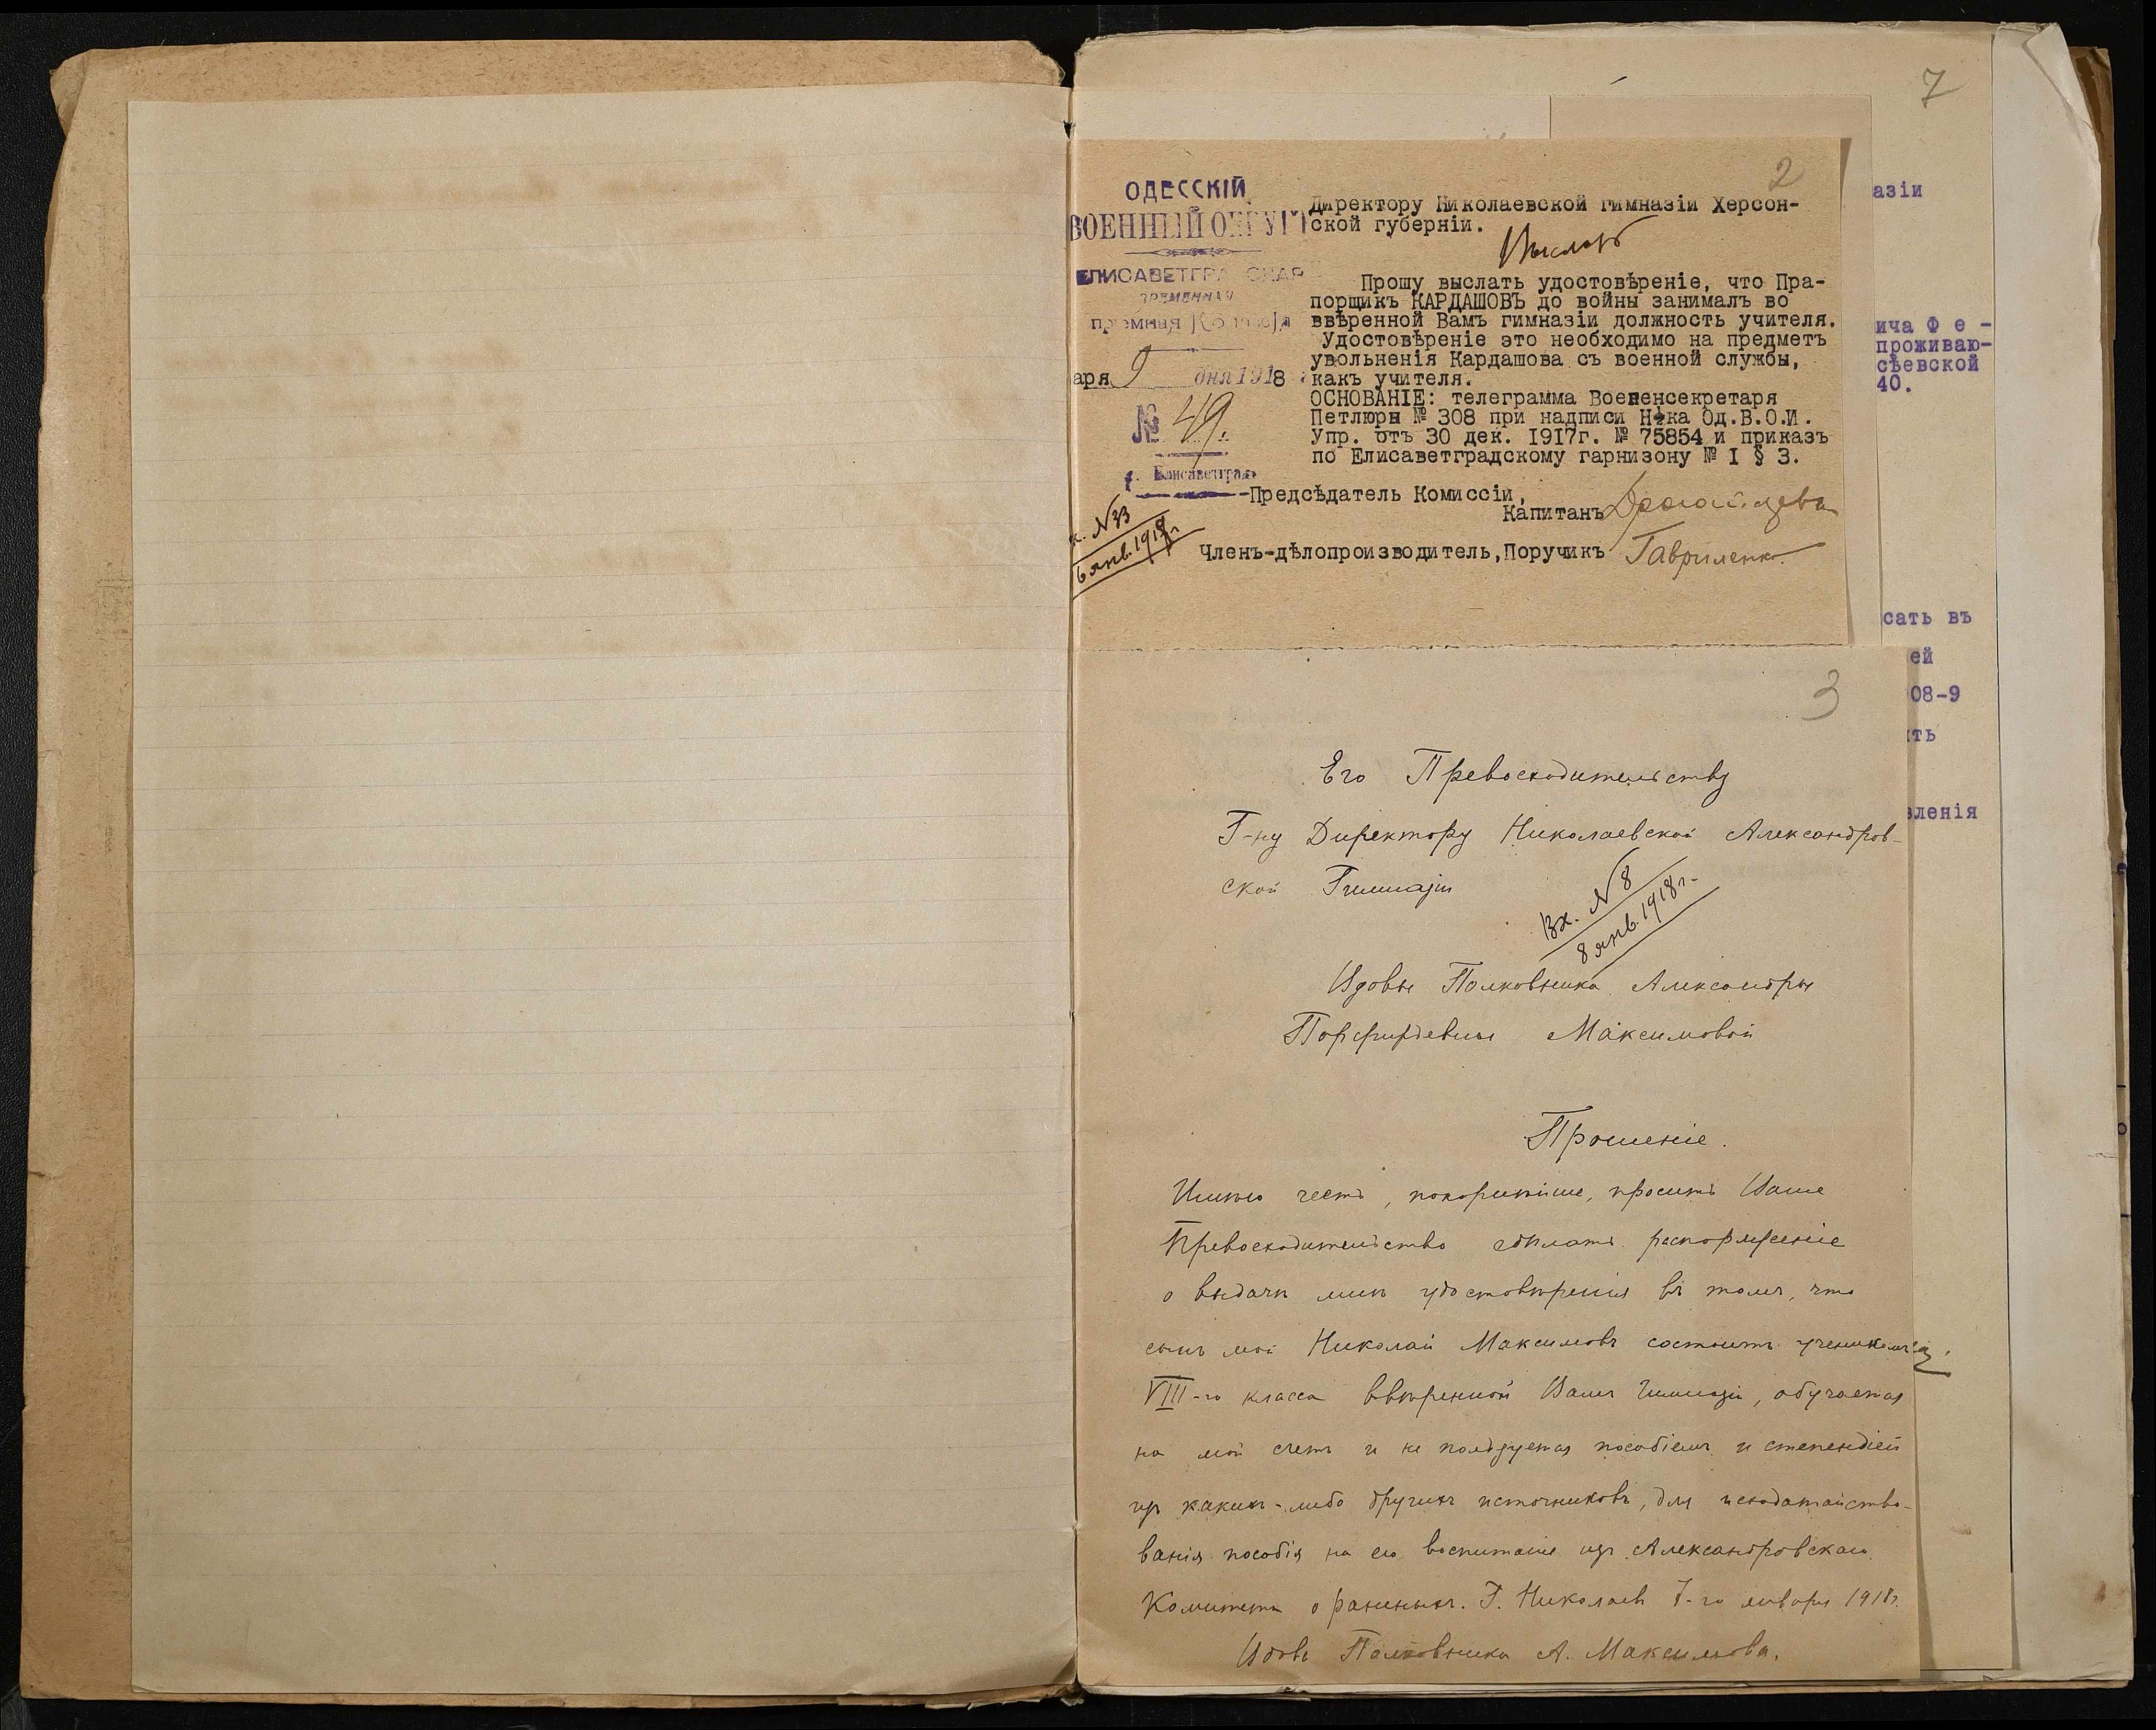 7
2
ОДЕССКІЙ
ВОЕННЫЙ ОКРУГ
ЕЛИСАВЕТГРА СКАЯ
ВРЕМЕННАЯ
пріемная
аря 9 дня 1918
№ 49.
г. Елисаветград
№ 33
6 янв. 1918 г.
Директору Николаевской гимназіи Херсон-
ской губерніи.
Прошу выслать удостовѣреніе, что Пра-
порщикъ КАРДАШОВЪ до войны занималъ во
ввѣренной Вамъ гимназіи должность учителя.
Удостовѣреніе это необходимо на предметъ
увольненія Кардашова съ военной службы,
какъ учителя.
ОСНОВАНІЕ: телеграмма Воененсекретаря
Петлюры № 308 при надписи Н-ка Од.В.О.И.
Упр. отъ 30 дек. 1917г. № 75854 и приказъ
по Елисаветградскому гарнизону № I § 3.
Предсѣдатель Комиссіи,
Капитанъ
Членъ-дѣлопроизводитель, Поручикъ Гавриленко
азіи
ича Ф е -
проживаю-
сѣевской
40.
сать въ
ей
08-9
ть
вленія
3
Его Превосходительству
Г-ну Директору Николаевской Александров-
ской Гимназіи
Вх. № 8
8 янв. 1918 г.
Вдовы Полковника Александры
Порфирьевны Максимовой
Прошеніе.
Имѣю честь, покорнѣйше, просить Ваше
Превосходительство сдѣлать распоряженіе
о выдачѣ мнѣ удостовѣренія въ томъ, что
сынъ мой Николай Максимовъ состоитъ ученикомъ
VIII-го класса ввѣренной Вамъ Гимназіи, обучается
на мой счетъ и не пользуется пособіемъ и стипендіей
изъ какихъ-либо другихъ источниковъ, для исходатайство-
ванія пособія на его воспитаніе изъ Александровскаго
Комитета о раненыхъ. Г. Николаевъ 7-го января 1918 г.
Вдова Полковника А. Максимова.